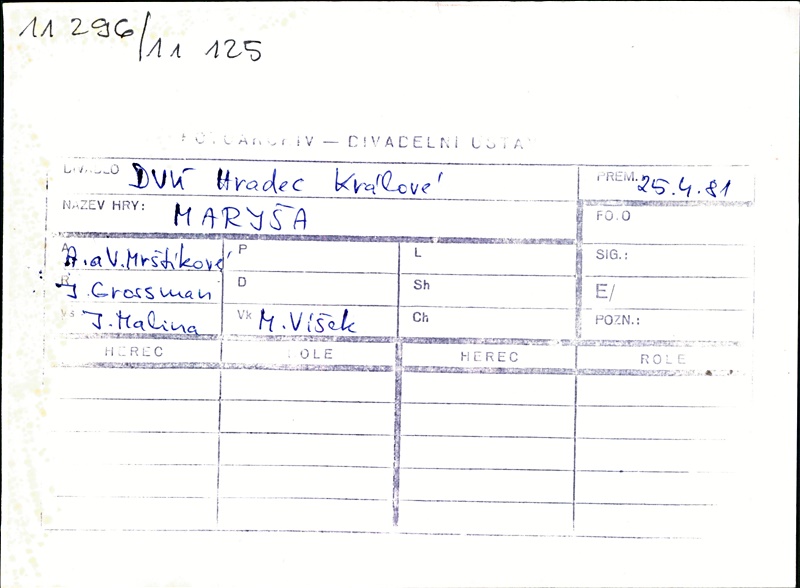 11 296/11 125
FOTOARCHIV — DIVADELNÍ ÚSTAV
DIVADLO DVÚ Hradec Králové PREM. 25.4.81
NÁZEV HRY: MARYŠA FOTO
A A. a V. Mrštíkové P L SIG.:
R J. Grossman D Sh E/
Vs J. Malina Vk M. Víšek Ch POZN.:
HEREC ROLE HEREC ROLE